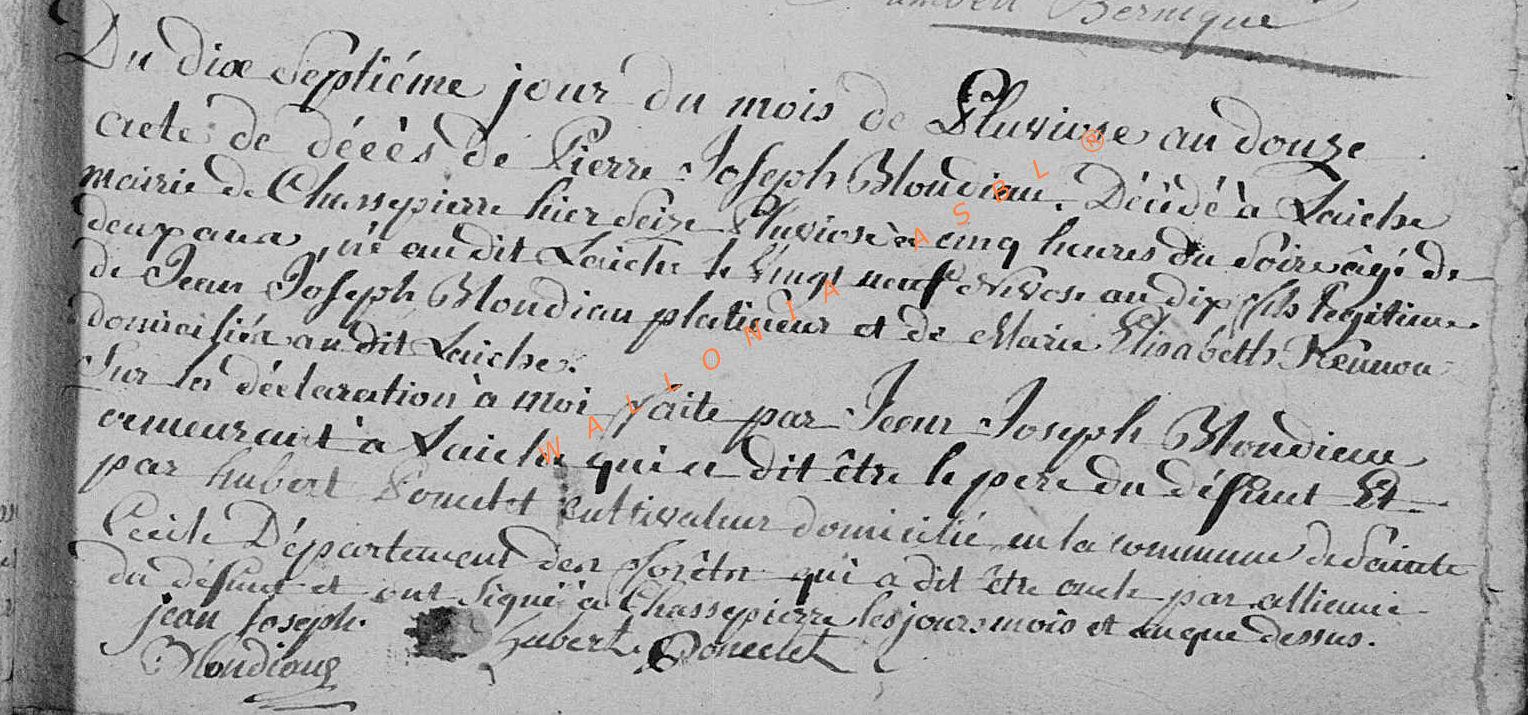 Bernique
Du dix Septiéme jour du mois de Pluviose an douze
acte de décès de Pierre Joseph Blondiau. Décédé à Laiche
mairie de Chassepierre hier Seize Pluviose à cinq heures du Soir âgé de
deux ans, né audit Laiche le vingt neuf Nivose an dix fils legitime
de Jean Joseph Blondiau platineur et de Marie Elisabeth
domiciliés audit Laiche.
Sur la déclaration à moi faite par Jean Joseph Blondiau
demeurant à Laiche qui a dit être le pere du défunt Et
par hubert cultivateur domicilié en la commune de Sainte
Cecile Département des forêts qui a dit être oncle par alliance
du défunt et ont Signé à Chassepierre les jours mois et an que dessus.
jean Joseph
Blondiaux
hubert
WALLONIA ASBL ®